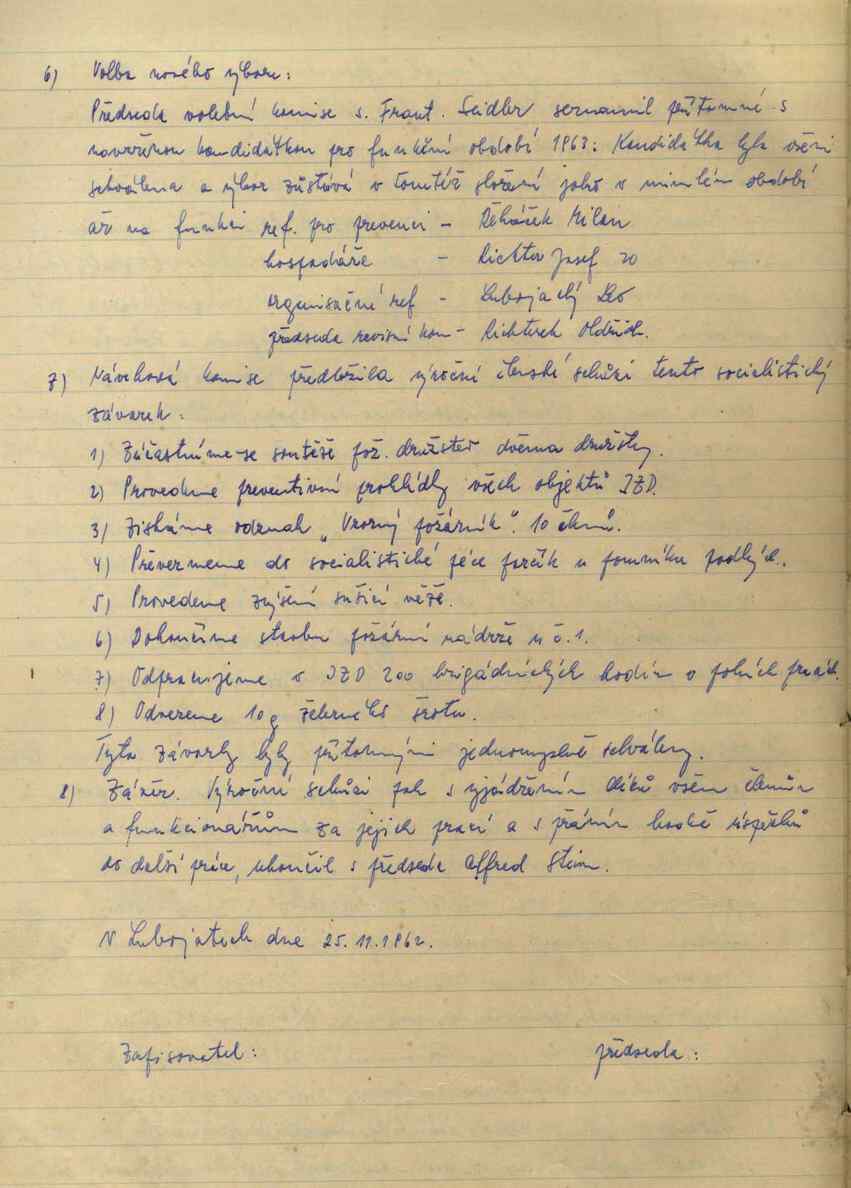 6) Volba nového výboru:
Předseda volební komise s. Frant. Seidler seznamil přítomné s
navrženou kandidátkou pro funkční období 1963: Kandidátka byla všemi
schválena a výbor zůstává v tomtéž složení jako v minulém období
až na funkci ref. pro prevenci - Řeháček Milan
hospodáře - Richter Josef 20
organisační ref - Lubojacký Leo
předseda revisní kom - Richterek Oldřich.
7) Návrhová komise předložila výroční členské schůzi tento socialistický
závazek:
1) Zúčastníme-se soutěže pož. družstev dvěma družstvy.
2) Provedeme preventivní prohlídky všech objektů JZD.
3) Získáme odznak „Vzorný požárník". 10 členů.
4) Převezmeme do socialistické péče parčík u pomníku padlých.
5) Provedeme zvýšení sušící věže.
6) Dokončíme stavbu požární nádrže u č. 1.
7) Odpracujeme v JZD 200 brigádnických hodin v polních pracích.
8) Odvezeme 10 q železného šrotu.
Tyto závazky byly přítomnými jednomyslně schváleny.
8) Závěr. Výroční schůzi pak s vyjádřením díků všem členům
a funkcionářům za jejich práci a s přáním hodně úspěchů
do další práce, ukončil s předseda Alfred Stein.
V Lubojatech dne 25.11.1962.
Zapisovatel: předseda: